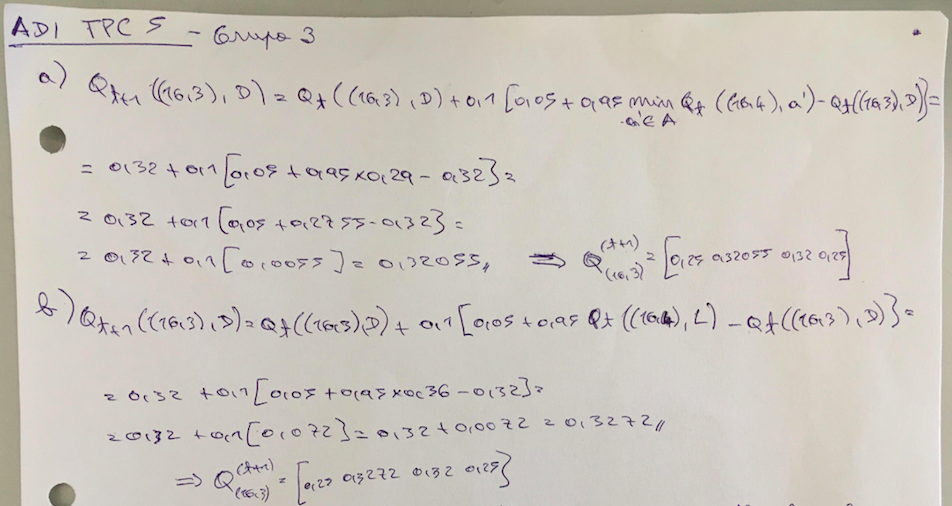 ADI TPC 5 - Grupo 3
a) Qt+1 ((16,3), D) = Qt ((16,3), D) + 0,1 [0,05 + 0,95 min Qt ((16,4), a') - Qt((16,3), D)] =
a'∈A
= 0,32 + 0,1 [0,05 + 0,95 × 0,29 - 0,32] =
= 0,32 + 0,1 [0,05 + 0,2755 - 0,32] =
= 0,32 + 0,1 [0,0055] = 0,32055 // ⇒ Q(16,3)(t+1) = [0,25 0,32055 0,32 0,25]
b) Qt+1 ((16,3), D) = Qt((16,3), D) + 0,1 [0,05 + 0,95 Qt ((16,4), L) - Qt((16,3), D)] =
= 0,32 + 0,1 [0,05 + 0,95 × 0,36 - 0,32] =
= 0,32 + 0,1 [0,072] = 0,32 + 0,0072 = 0,3272 //
⇒ Q(16,3)(t+1) = [0,25 0,3272 0,32 0,25]